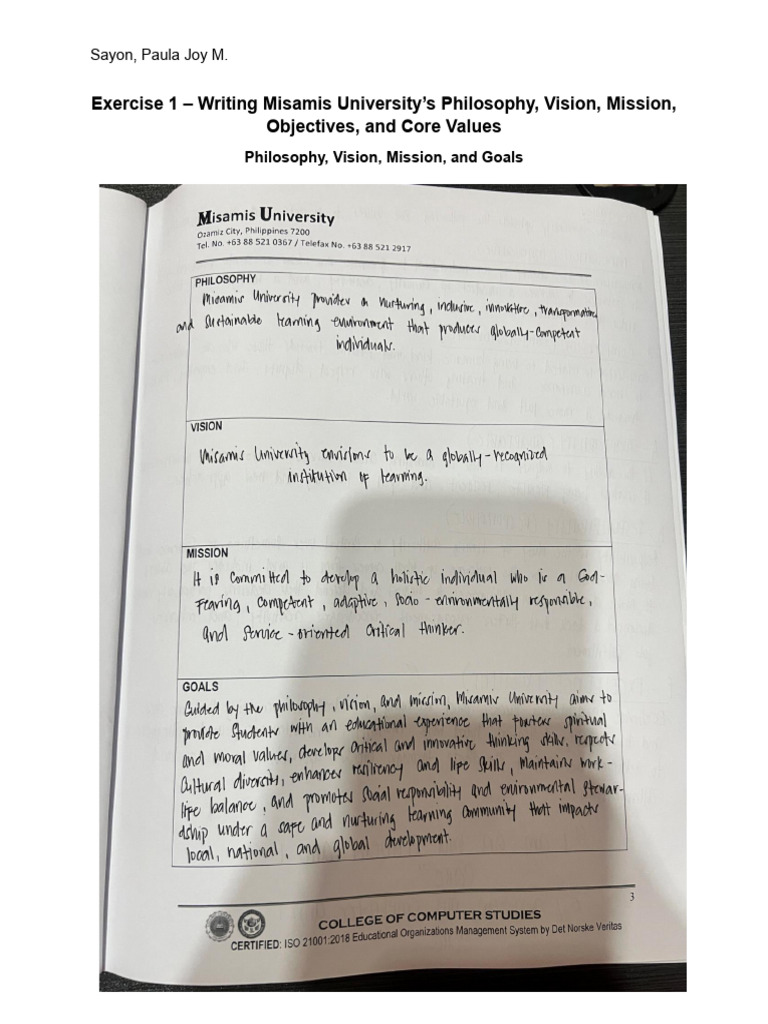 Sayon, Paula Joy M.
Exercise 1 – Writing Misamis University's Philosophy, Vision, Mission,
Objectives, and Core Values
Philosophy, Vision, Mission, and Goals
Misamis University
Ozamiz City, Philippines 7200
Tel. No. +63 88 521 0367 / Telefax No. +63 88 521 2917
PHILOSOPHY
Misamis University provides a nurturing, inclusive, innovative, transformative,
and sustainable learning environment that produces globally-competent
individuals.
VISION
Misamis University envisions to be a globally-recognized
institution of learning.
MISSION
It is committed to develop a holistic individual who is a God-
Fearing, competent, adaptive, socio-environmentally responsible,
and service-oriented critical thinker.
GOALS
Guided by the philosophy, vision, and mission, Misamis University aims to
provide students with an educational experience that fosters spiritual
and moral values, develops critical and innovative thinking skills, respects
cultural diversity, enhances resiliency and life skills, maintains work-
life balance, and promotes social responsibility and environmental stewar-
dship under a safe and nurturing learning community that impacts
local, national, and global development.
3
COLLEGE OF COMPUTER STUDIES
CERTIFIED: ISO 21001:2018 Educational Organizations Management System by Det Norske Veritas